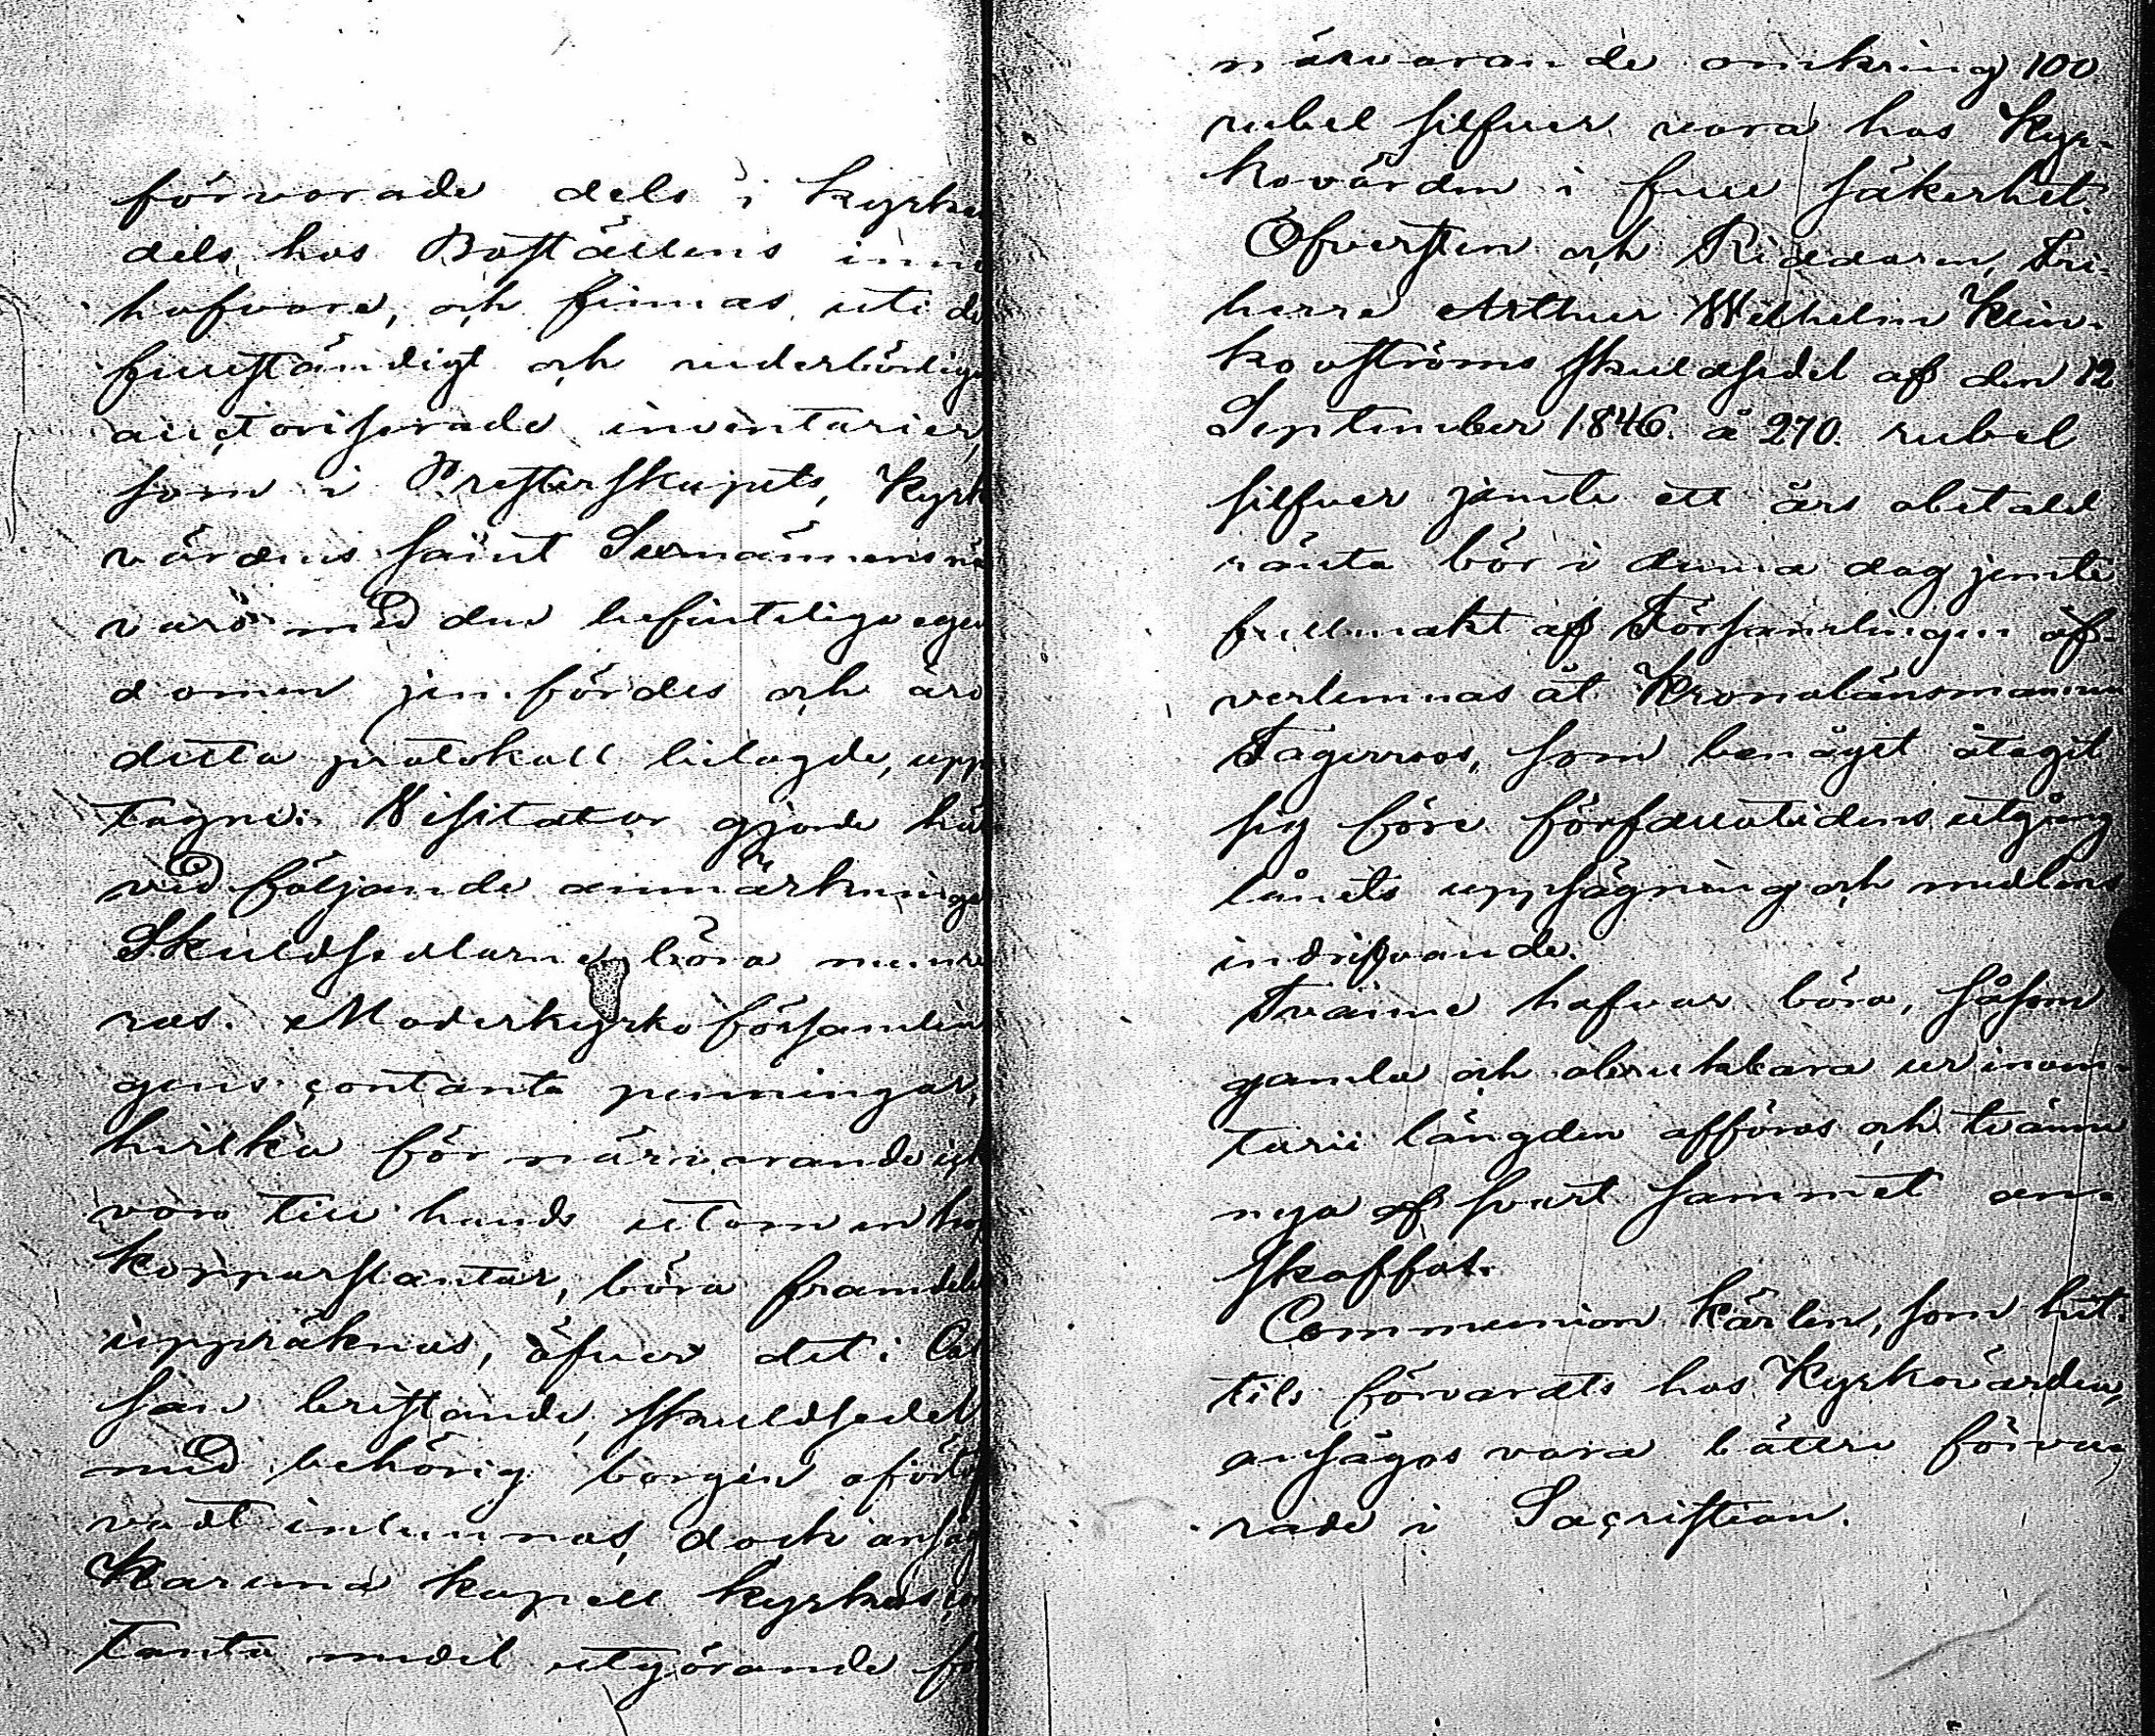 förvarade dels i Kyrka
dels hos Boställens inne
hafvare, och finnas uti de
fullständigt och vederbörlige
auctoriserade inventarier,
som i Presterskapets, Kyrk
värdens samt Sexmännens när
varo med den befinteliga egen
domen jemfördes och äro
detta protokoll bilagde, upp
tagne. Visitator gjorde här
vid följande anmärkninga
Skuldsedlarne böra numre
ras. Moderkyrko församlin
gens contanta penningar,
hvilka för närvarande ick
voro till hands utom en hop
kopparslantar, böra framdeles
uppräknas, öfver det i Cas
san bristande, skuldsedel
med behörig borgen oförtöf
vadt inlemnas, dock ansåg
Karuna kapell kyrkas con
tanta medel utgörande för
närvarande omkring 100
rubel silfver vara hos Kyr-
kovärden i full säkerhet.
Öfversten och Riddaren, Fri-
herre Arthur Wilhelm Klin-
kovströms skuldsedel af den 12
September 1846. å 270. rubel
silfver jemte ett års obetald
ränta bör i denna dag jemte
fullmakt af Församlingen öf-
verlemnas åt Kronolänsmannen
Fagerroos, som benäget åtagit
sig före förfallotidens utgång
lånets uppsägning och medlens
indrifvande.
Tvänne hafvar böra, såsom
gamla och obrukbara ur inven-
tarii längden afföras och tvänne
nya af svart sammet an-
skaffas.
Communion kärlen, som hit-
tils förvarats hos Kyrkovärden,
ansågos vara bättre förva-
rade i Sacristian.